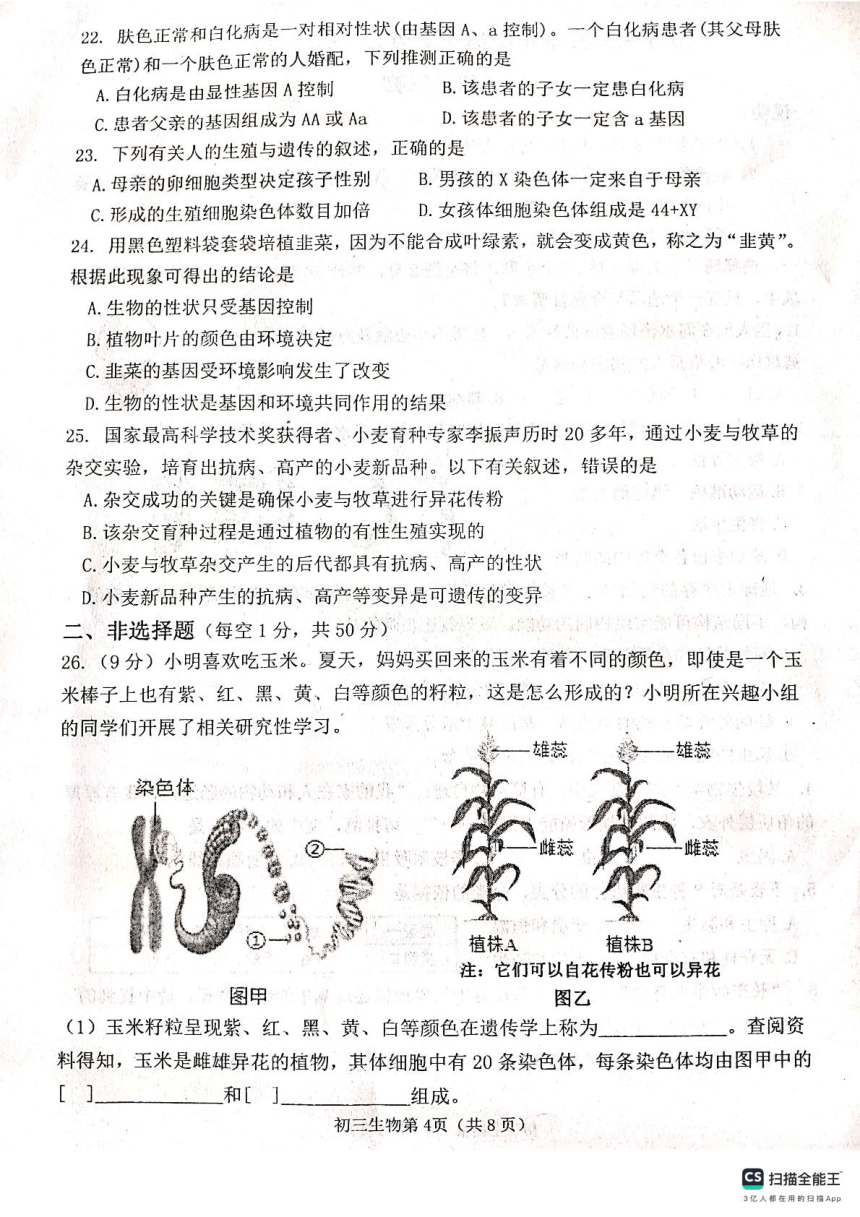 22. 肤色正常和白化病是一对相对性状(由基因 A、a 控制)。一个白化病患者(其父母肤
色正常)和一个肤色正常的人婚配，下列推测正确的是
A. 白化病是由显性基因 A 控制 B. 该患者的子女一定患白化病
C. 患者父亲的基因组成为 AA 或 Aa D. 该患者的子女一定含 a 基因
23. 下列有关人的生殖与遗传的叙述，正确的是
A. 母亲的卵细胞类型决定孩子性别 B. 男孩的 X 染色体一定来自于母亲
C. 形成的生殖细胞染色体数目加倍 D. 女孩体细胞染色体组成是 44+XY
24. 用黑色塑料袋套袋培植韭菜，因为不能合成叶绿素，就会变成黄色，称之为“韭黄”。
根据此现象可得出的结论是
A. 生物的性状只受基因控制
B. 植物叶片的颜色由环境决定
C. 韭菜的基因受环境影响发生了改变
D. 生物的性状是基因和环境共同作用的结果
25. 国家最高科学技术奖获得者、小麦育种专家李振声历时 20 多年，通过小麦与牧草的
杂交实验，培育出抗病、高产的小麦新品种。以下有关叙述，错误的是
A. 杂交成功的关键是确保小麦与牧草进行异花传粉
B. 该杂交育种过程是通过植物的有性生殖实现的
C. 小麦与牧草杂交产生的后代都具有抗病、高产的性状
D. 小麦新品种产生的抗病、高产等变异是可遗传的变异
二、非选择题（每空 1 分，共 50 分）
26.（9 分）小明喜欢吃玉米。夏天，妈妈买回来的玉米有着不同的颜色，即使是一个玉
米棒子上也有紫、红、黑、黄、白等颜色的籽粒，这是怎么形成的？小明所在兴趣小组
的同学们开展了相关研究性学习。
染色体
①
②
图甲
雄蕊 雄蕊
雌蕊 雌蕊
植株A 植株B
注：它们可以自花传粉也可以异花
图乙
（1）玉米籽粒呈现紫、红、黑、黄、白等颜色在遗传学上称为____________。查阅资
料得知，玉米是雌雄异花的植物，其体细胞中有 20 条染色体，每条染色体均由图甲中的
[ ]____________和[ ]____________组成。
初三生物第 4页（共 8 页）
CS 扫描全能王
3亿人都在用的扫描App